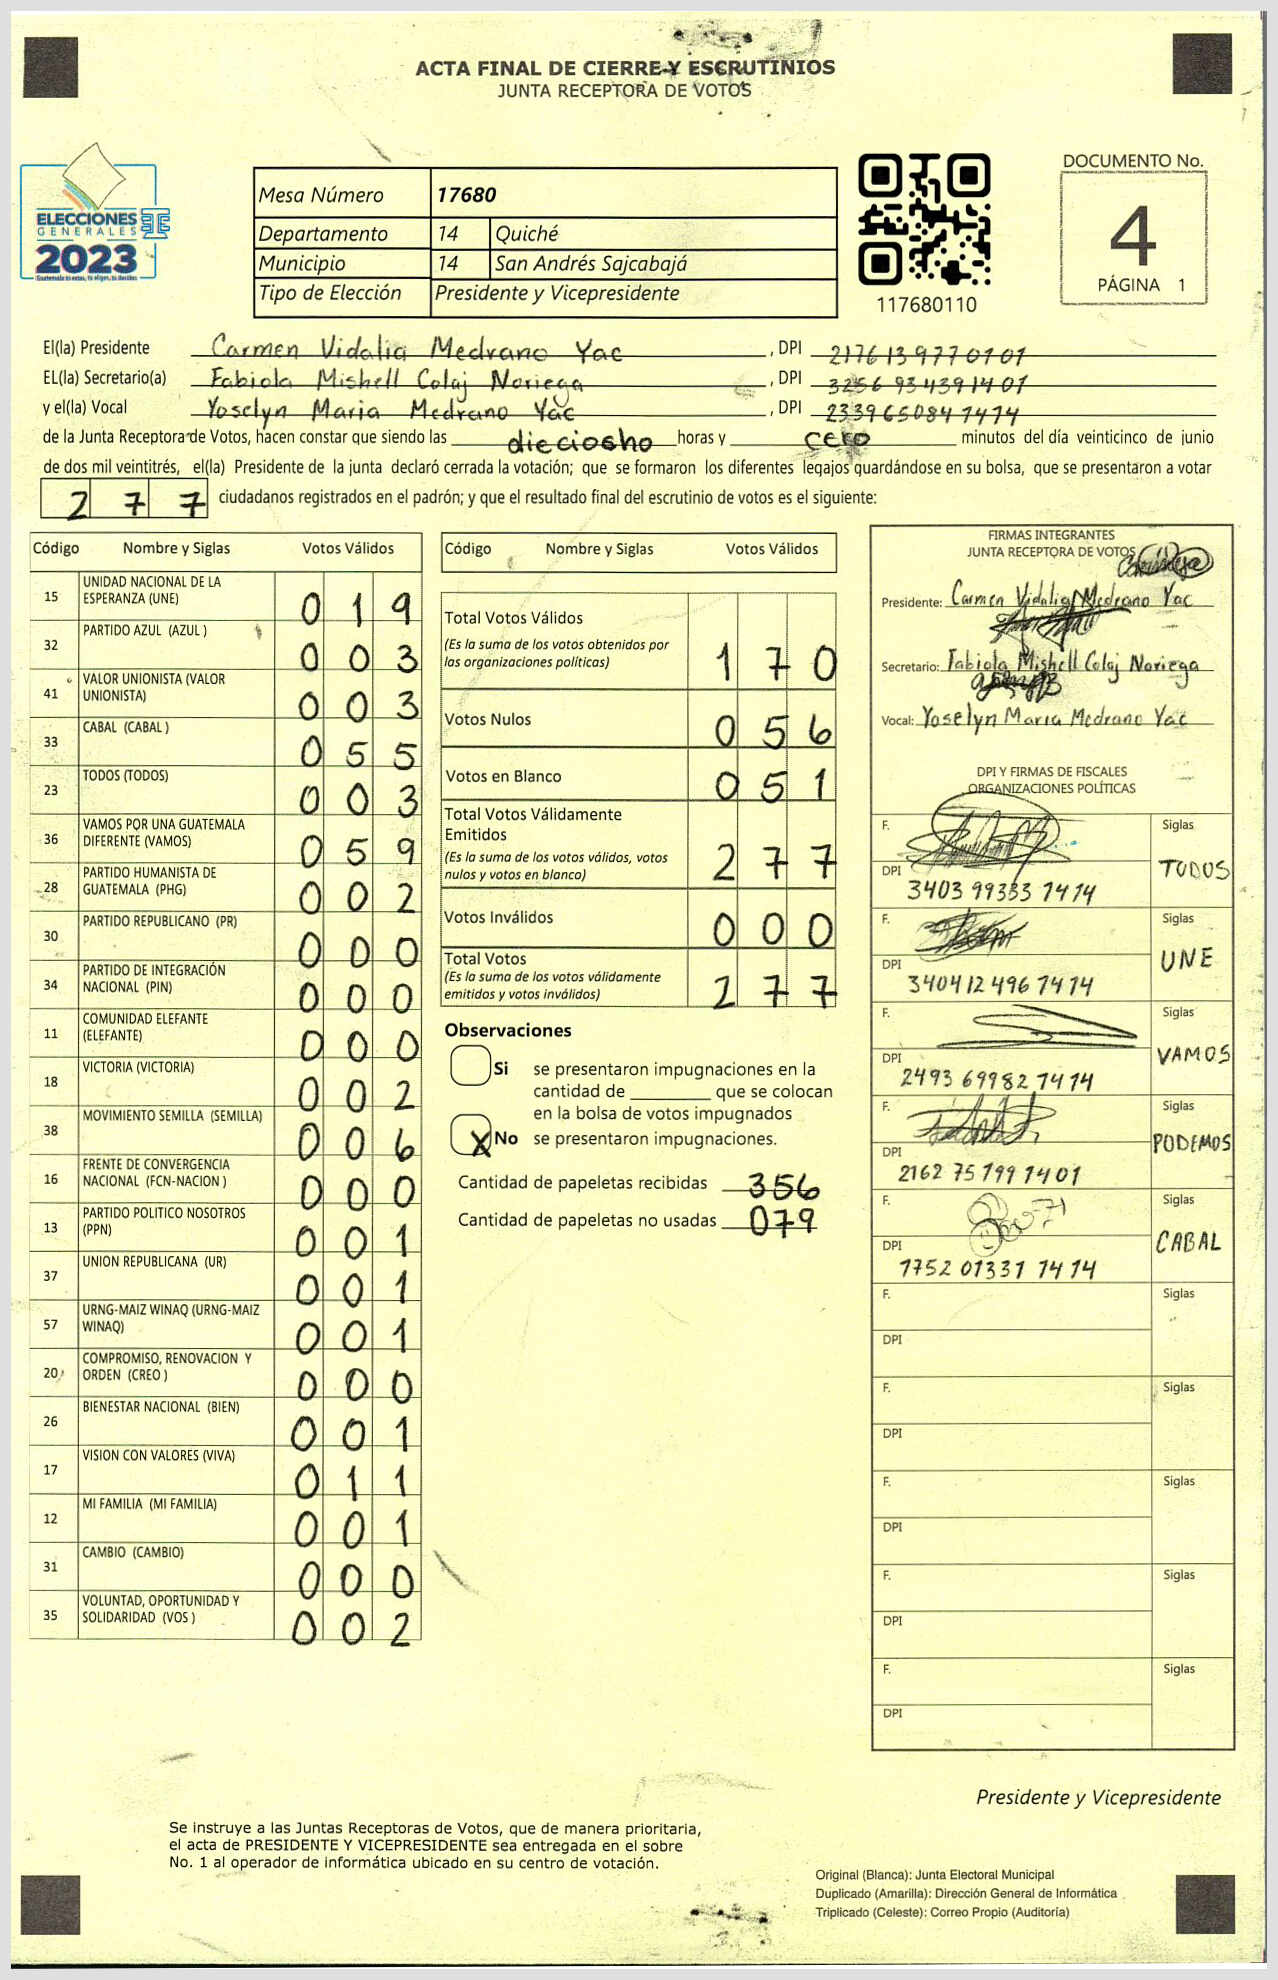 ACTA FINAL DE CIERRE Y ESCRUTINIOS
JUNTA RECEPTORA DE VOTOS
ELECCIONES
GENERALES
2023
Mesa Número 17680
Departamento 14 Quiché
Municipio 14 San Andrés Sajcabajá
Tipo de Elección Presidente y Vicepresidente
117680110
DOCUMENTO No.
4
PÁGINA 1
El(la) Presidente Carmen Vidalia Medrano Yac , DPI 2176139770101
EL(la) Secretario(a) Fabiola Mishell Colaj Noriega , DPI 3256934391401
y el(la) Vocal Yoselyn Maria Medrano Yac , DPI 2339650841414
de la Junta Receptora de Votos, hacen constar que siendo las dieciosho horas y cero minutos del día veinticinco de junio
de dos mil veintitrés, el(la) Presidente de la junta declaró cerrada la votación; que se formaron los diferentes legajos guardándose en su bolsa, que se presentaron a votar
277 ciudadanos registrados en el padrón; y que el resultado final del escrutinio de votos es el siguiente:
Código Nombre y Siglas Votos Válidos
15 UNIDAD NACIONAL DE LA
ESPERANZA (UNE) 019
32 PARTIDO AZUL (AZUL ) 003
41 VALOR UNIONISTA (VALOR
UNIONISTA) 003
33 CABAL (CABAL ) 055
23 TODOS (TODOS) 003
36 VAMOS POR UNA GUATEMALA
DIFERENTE (VAMOS) 059
28 PARTIDO HUMANISTA DE
GUATEMALA (PHG) 002
30 PARTIDO REPUBLICANO (PR) 000
34 PARTIDO DE INTEGRACIÓN
NACIONAL (PIN) 000
11 COMUNIDAD ELEFANTE
(ELEFANTE) 000
18 VICTORIA (VICTORIA) 002
38 MOVIMIENTO SEMILLA (SEMILLA) 006
16 FRENTE DE CONVERGENCIA
NACIONAL (FCN-NACION ) 000
13 PARTIDO POLITICO NOSOTROS
(PPN) 001
37 UNION REPUBLICANA (UR) 001
57 URNG-MAIZ WINAQ (URNG-MAIZ
WINAQ) 001
20 COMPROMISO, RENOVACION Y
ORDEN (CREO ) 000
26 BIENESTAR NACIONAL (BIEN) 001
17 VISION CON VALORES (VIVA) 011
12 MI FAMILIA (MI FAMILIA) 001
31 CAMBIO (CAMBIO) 000
35 VOLUNTAD, OPORTUNIDAD Y
SOLIDARIDAD (VOS ) 002
Código Nombre y Siglas Votos Válidos
Total Votos Válidos
(Es la suma de los votos obtenidos por
las organizaciones políticas) 170
Votos Nulos 056
Votos en Blanco 051
Total Votos Válidamente
Emitidos
(Es la suma de los votos válidos, votos
nulos y votos en blanco) 277
Votos Inválidos 000
Total Votos
(Es la suma de los votos válidamente
emitidos y votos inválidos) 277
Observaciones
Si se presentaron impugnaciones en la
cantidad de ________ que se colocan
en la bolsa de votos impugnados
X No se presentaron impugnaciones.
Cantidad de papeletas recibidas 356
Cantidad de papeletas no usadas 079
FIRMAS INTEGRANTES
JUNTA RECEPTORA DE VOTOS
Presidente: Carmen Vidalia Medrano Yac
Secretario: Fabiola Mishell Colaj Noriega
Vocal: Yoselyn Maria Medrano Yac
DPI Y FIRMAS DE FISCALES
ORGANIZACIONES POLÍTICAS
F. Siglas
TODOS
DPI 3403 99333 1414
F. Siglas
UNE
DPI 3404 12 496 1414
F. Siglas
VAMOS
DPI 2493 69982 1414
F. Siglas
PODEMOS
DPI 2162 75 199 1401
F. Siglas
CABAL
DPI 1752 01331 1414
F. Siglas
DPI
F. Siglas
DPI
F. Siglas
DPI
F. Siglas
DPI
F. Siglas
DPI
Presidente y Vicepresidente
Se instruye a las Juntas Receptoras de Votos, que de manera prioritaria,
el acta de PRESIDENTE Y VICEPRESIDENTE sea entregada en el sobre
No. 1 al operador de informática ubicado en su centro de votación.
Original (Blanca): Junta Electoral Municipal
Duplicado (Amarilla): Dirección General de Informática
Triplicado (Celeste): Correo Propio (Auditoría)